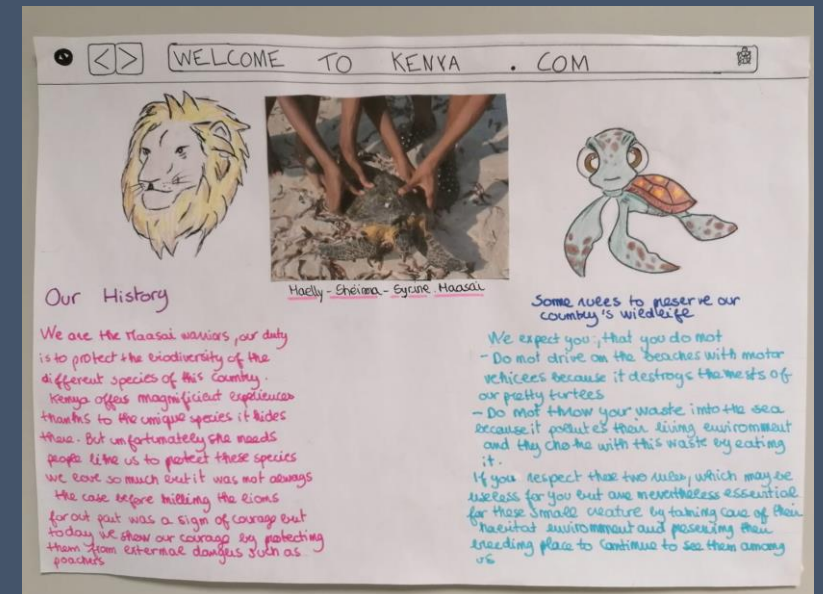 < >
WELCOME TO KENYA . COM
Maelly - Sheima - Syrine . Maasai
Our History
We are the Maasai warriors, our duty
is to protect the biodiversity of the
different species of this country.
Kenya offers magnificient experiences
thanks to the unique species it hides
there. But unfortunately she needs
people like us to protect these species
we love so much but it was not always
the case before killing the lions
for out part was a sign of courage but
today we show our courage by protecting
them from external dangers such as
poachers
Some rules to preserve our
country's wildlife
We expect you, that you do not
- Do not drive on the beaches with motor
vehicles because it destroys the nests of
our pretty turtles
- Do not throw your waste into the sea
because it pollutes their living environment
and they choke with this waste by eating
it.
If you respect these two rules, which may be
useless for you but are nevertheless essential
for these small creature by taking care of their
habitat environment and preserving their
breeding place to continue to see them among
us